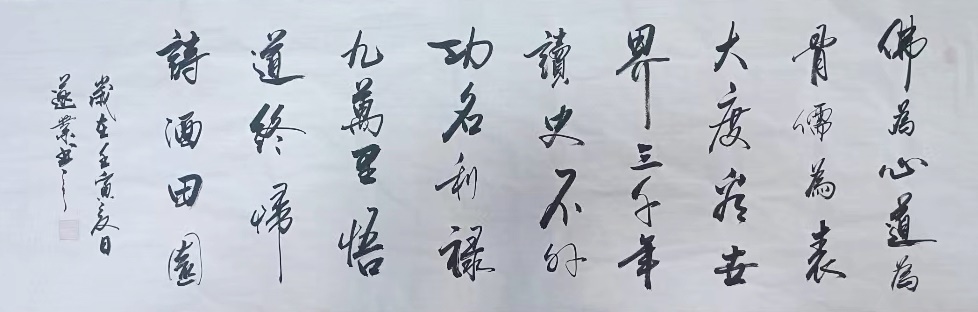 佛為心道為
骨儒為表
大度看世
界三千年
讀史不外
功名利祿
九萬里悟
道終歸
詩酒田園
歲在壬寅夏日
遂業書之